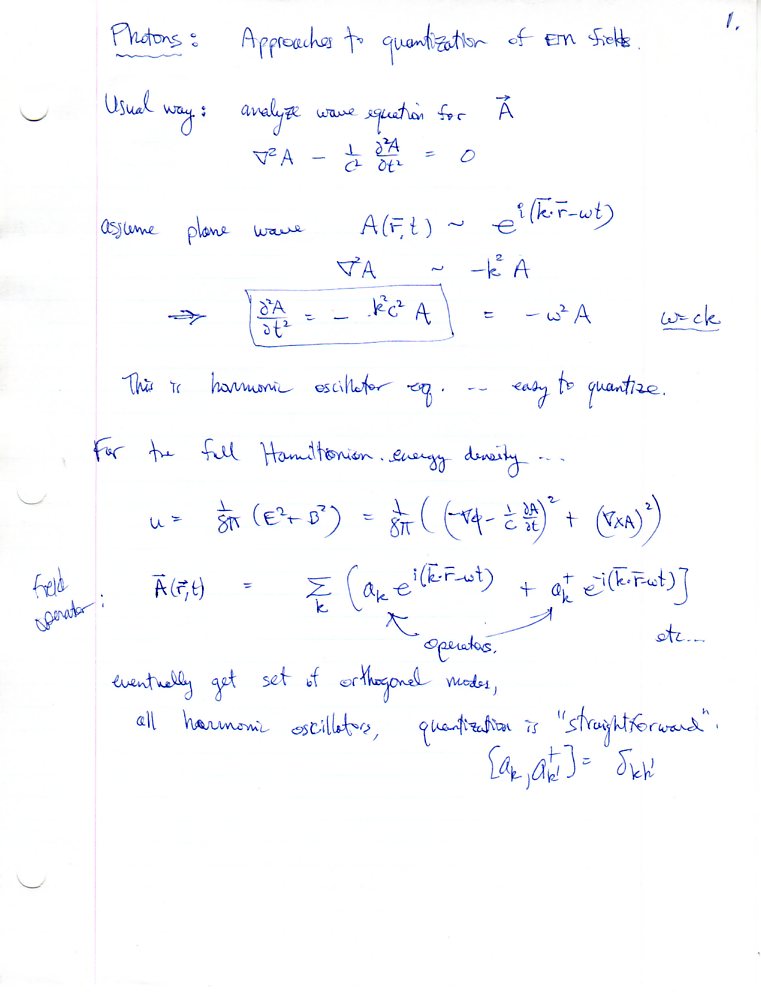 1.
Photons: Approaches to quantization of EM fields.
Usual way: analyze wave equation for A⃗
∇²A − 1/c² ∂²A/∂t² = 0
assume plane wave A(r̄,t) ~ e^{i(k̄·r̄−ωt)}
∇²A ~ −k² A
⇒ ∂²A/∂t² = − k²c² A = −ω² A ω=ck
This is harmonic oscillator eq. -- easy to quantize.
For the full Hamiltonian. energy density ...
u = 1/8π (E²+B²) = 1/8π ( (−∇φ − 1/c ∂A/∂t)² + (∇×A)² )
field operator: A⃗(r⃗,t) = Σ_k (a_k e^{i(k̄·r̄−ωt)} + a_k^† e^{−i(k̄·r̄−ωt)}]
operators.
etc...
eventually get set of orthogonal modes,
all harmonic oscillators, quantization is "straightforward".
[a_k, a_k'^†] = δ_kk'